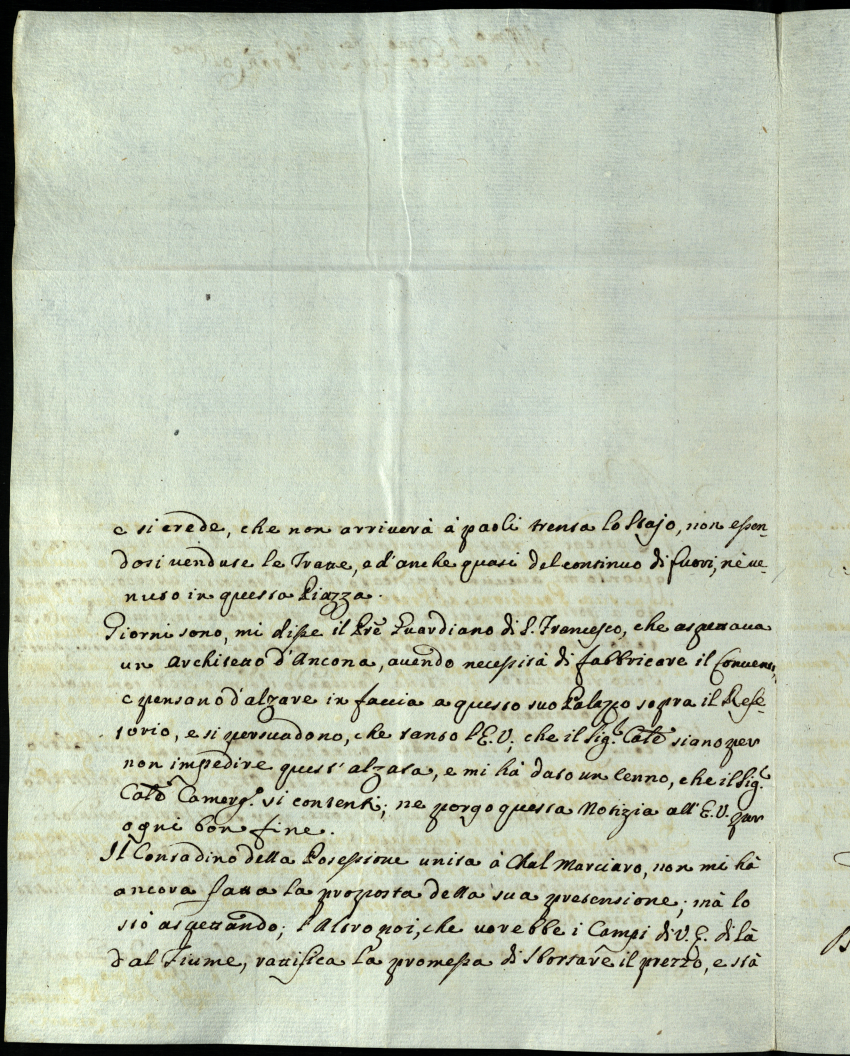 e si crede, che non arriverà à paoli trenta lo Stajo, non essen-
dosi vendute le Tratte, ed'anche quasi del continuo di fuori, nè ve-
nuto in questa Piazza.
Giorni sono, mi disse il Prē Guardiano di S. Francesco, che aspettava
un Architetto d'Ancona, avendo necessità di fabbricare il Convento,
e pensano d'alzare in faccia a questo suo Palazzo sopra il Refe-
torio, e si persuadono, che tanto l'E.V., che il Sig.r Catē siano per
non impedire quest'alzata, e mi hà dato un cenno, che il Sig.r
Catē Camerg.o vi contenti; ne porgo questa Notizia all'E.V. per
ogni bon fine.
Il Contadino della Posessione unita à Chal Marciaro, non mi hà
ancora fatta la proposta della sua pretensione; mà lo
stò aspettando; l'Altro poi, che vorebbe i Campi di V.E. di là
dal Fiume, rattifica la promessa di sborsare il prezzo, e stà